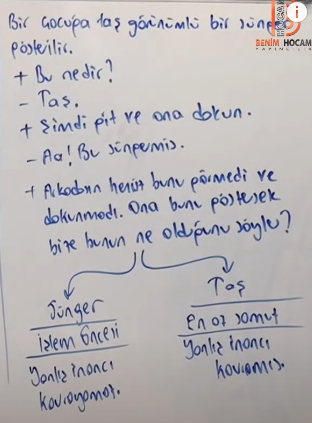 BENİM HOCAM
YAYINCILIK
Bir çocuğa taş görünümlü bir sünger
gösterilir.
+ Bu nedir?
- Taş.
+ Şimdi git ve ona dokun.
- Aa! Bu süngermiş.
+ Arkadaşın henüz bunu görmedi ve
dokunmadı. Ona bunu göstersek
bize bunun ne olduğunu söyler?
Sünger
İşlem Öncesi
Yanlış inancı
kavrayamaz.
Taş
en az somut
Yanlış inancı
kavramış.